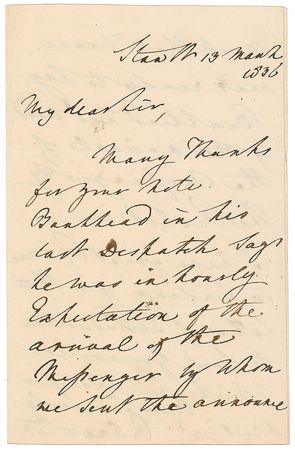 Stan St 13 March
1836
My dear Sir,
Many Thanks
for your note.
Bankhead in his
last Despatch says
he was in hourly
Expectation of the
arrival of the
Messenger by Whom
we sent the announce